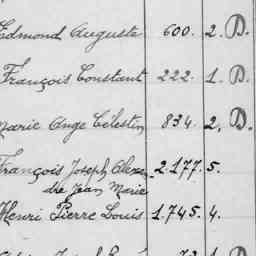 Edmond Auguste 600. 2. D.
François Constant 222. 1. D.
Marie Ange Célestin 834. 2. D.
François Joseph Alexan- 2.177. 5.
dre Jean Marie
Henri Pierre Louis 1.745. 4.